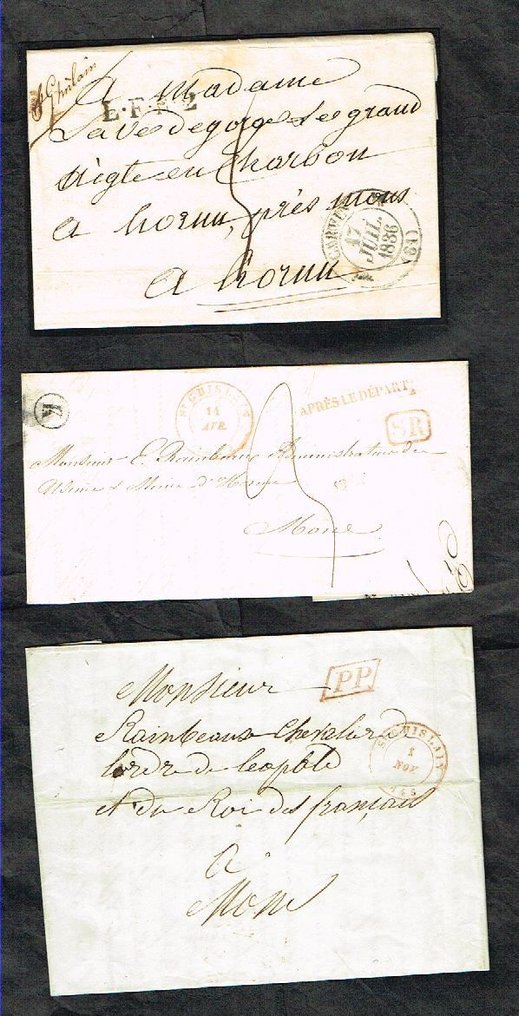 St Ghislain
A Madame
L.F.R.2
grand
en Charbon
a hornu, près mons
a hornu
17
JUIL
1836
(61)
5
ST GHISLAIN
14
AVR.
APRÈS LE DÉPART
SR
K
Monsieur E. Rainbeaux Administrateur des
Usines & Mines d'Hornu
Mons
3
Monsieur
PP
Rainbeaux Chevalier de
lordre de leopold
et du Roi des français
ST GHISLAIN
1
NOV
a
Mons